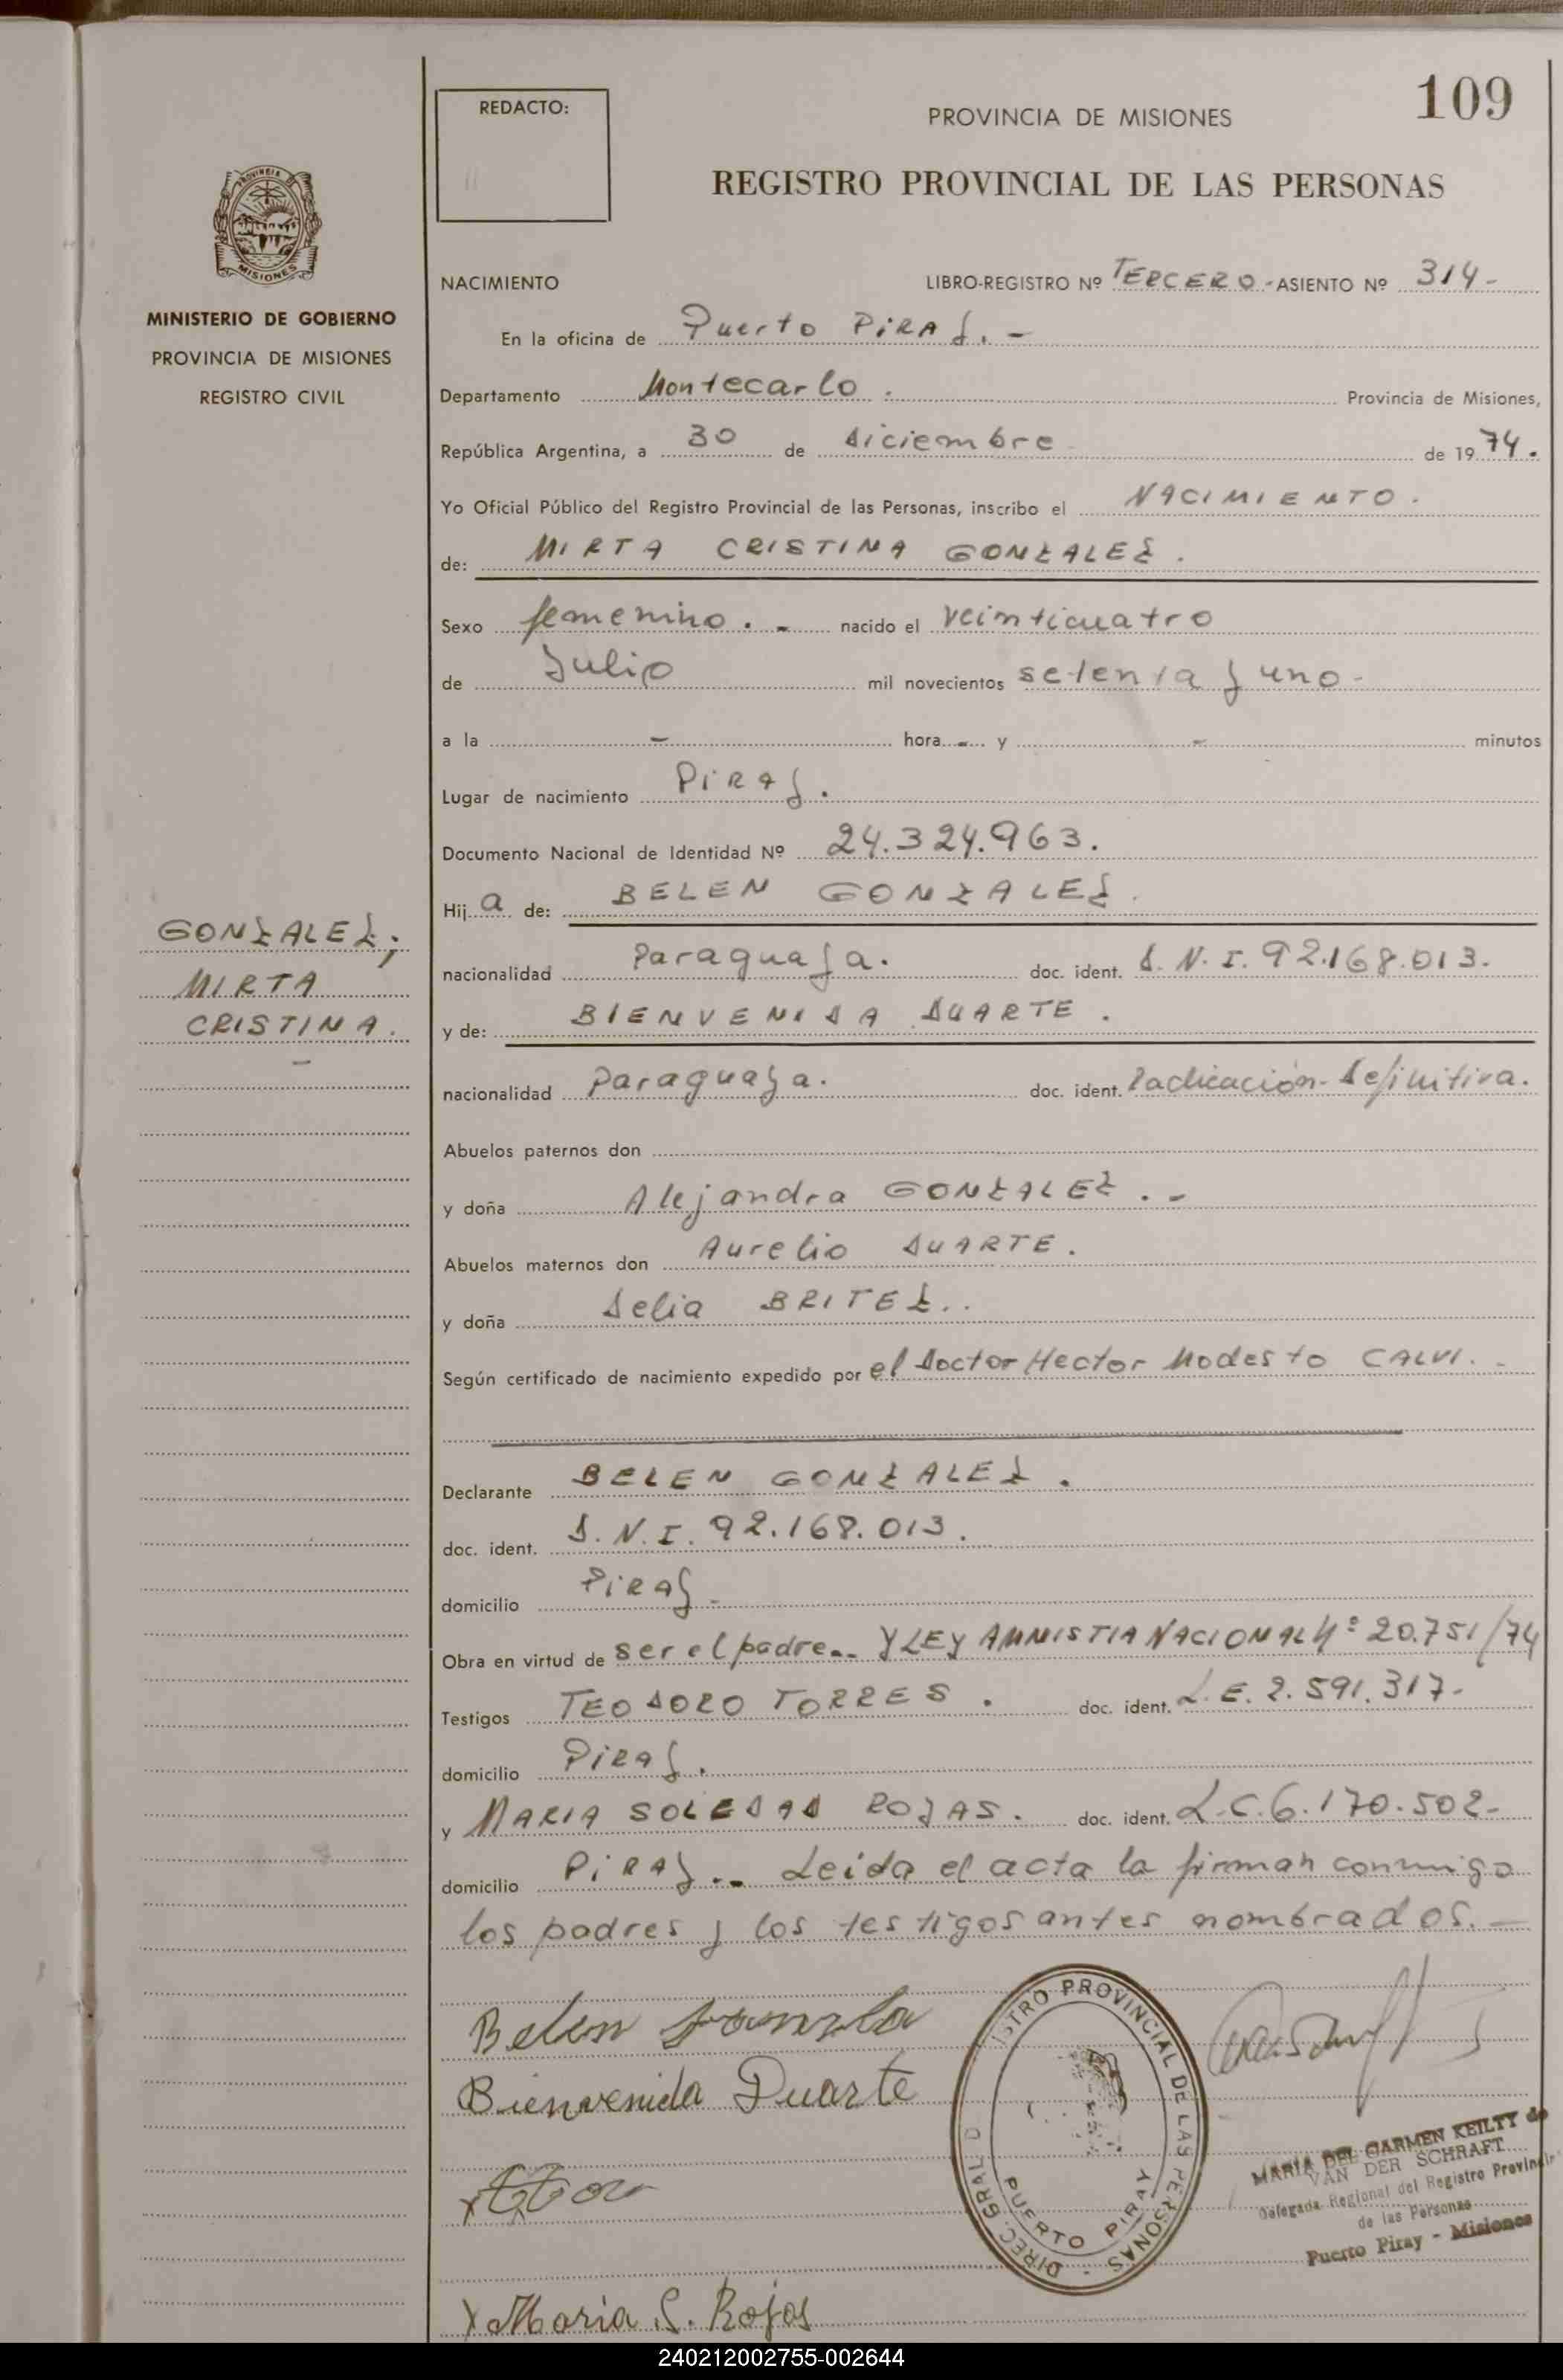 109
REDACTO:
PROVINCIA DE MISIONES
REGISTRO PROVINCIAL DE LAS PERSONAS
MISIONES
MINISTERIO DE GOBIERNO
PROVINCIA DE MISIONES
REGISTRO CIVIL
NACIMIENTO LIBRO-REGISTRO Nº TERCERO.- ASIENTO Nº 314-
En la oficina de Puerto PIRAY.-
Departamento Montecarlo. Provincia de Misiones,
República Argentina, a 30 de diciembre de 1974.
Yo Oficial Público del Registro Provincial de las Personas, inscribo el NACIMIENTO.
de: MIRTA CRISTINA GONZALEZ.
Sexo femenino.- nacido el veinticuatro
de Julio mil novecientos setenta y uno-
a la - hora - y - minutos
Lugar de nacimiento PIRAY.
Documento Nacional de Identidad Nº 24.324.963.
Hija de: BELEN GONZALEZ.
GONZALEZ;
MIRTA
CRISTINA.
-
nacionalidad Paraguaya. doc. ident. D.N.I. 92.168.013.
y de: BIENVENIDA DUARTE.
nacionalidad Paraguaya. doc. ident. Radicación-Definitiva.
Abuelos paternos don
y doña Alejandra GONZALEZ.-
Abuelos maternos don Aurelio DUARTE.
y doña Delia BRITEZ..
Según certificado de nacimiento expedido por el Doctor Hector Modesto CALVI.-
Declarante BELEN GONZALEZ.
doc. ident. D.N.I. 92.168.013.
domicilio PIRAY-
Obra en virtud de ser el padre.- Y LEY AMNISTIA NACIONAL Nº 20.751/74
Testigos TEODORO TORRES. doc. ident. L.E. 2.591.317-
domicilio PIRAY.
y MARIA SOLEDAD ROJAS. doc. ident. L.C. 6.170.502-
domicilio PIRAY.- Leida el acta la firman conmigo
los padres y los testigos antes nombrados.-
Belen
Bienvenida Duarte
X Maria S. Rojas
DIREC. GRAL D ISTRO PROVINCIAL DE LAS PERSONAS -
PUERTO PIRAY
MARIA DEL CARMEN KEILTY de
VAN DER SCHRAFT
Delegada Regional del Registro Provincial
de las Personas
Puerto Piray - Misiones
240212002755-002644